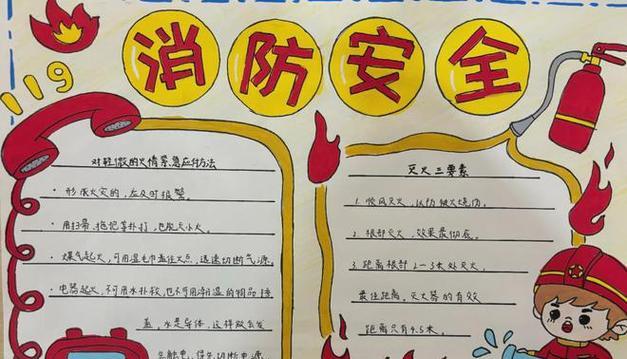 消防安全
119
对轻微的火情紧急应付方法
· 形成火灾的，应及时报警。
· 用扫帚、拖把等扑打，也能灭小火。
· 煤气起火，可用湿毛巾盖住火点，迅速切断气源。
· 电器起火，不可用水扑救，也不可用潮湿的物品捂
盖，水是导体，这样双会发
生触电，得先切断电源
灭火三要素
1. 顺风灭火，以防被火烧伤。
2. 根部灭火，效果最彻底。
3. 距离根部2-3米处灭火。
最佳距离，灭火器的有效
距离只有4.5米。